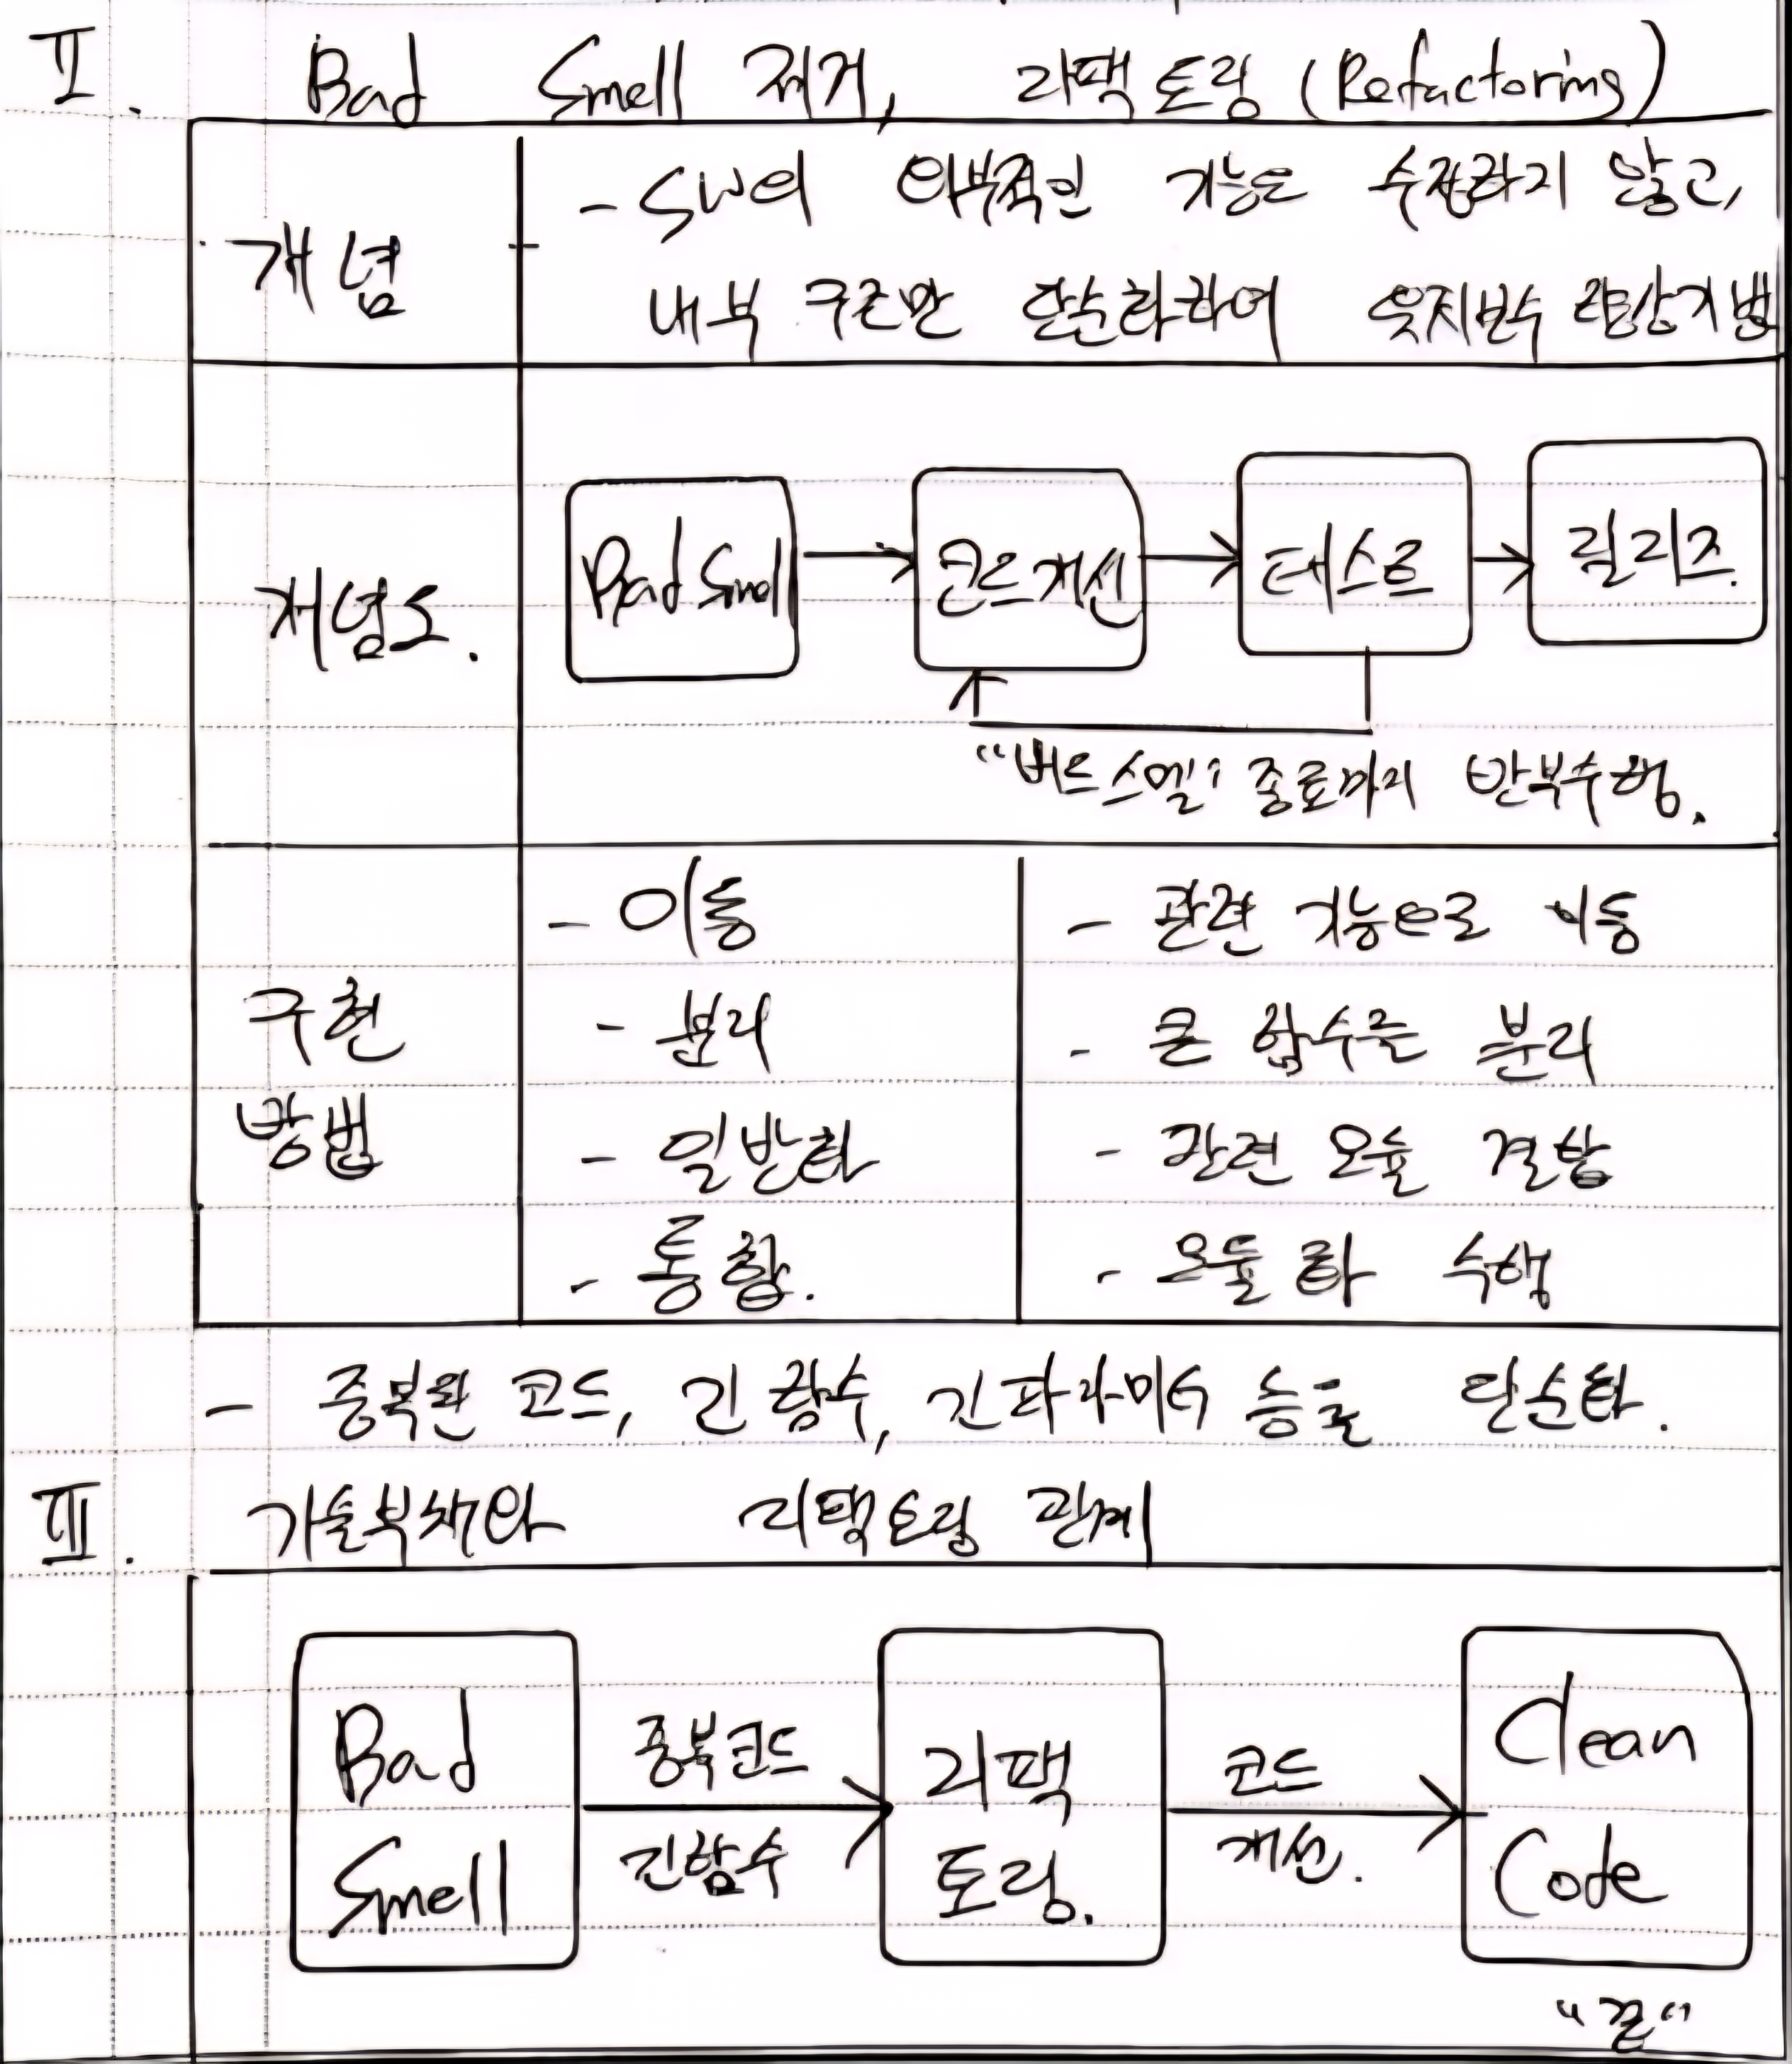 II. Bad Smell 제거, 리팩토링 (Refactoring)
개념
- SW의 외부적인 기능은 수정하지 않고,
내부 구조만 단순화하여 유지보수 향상기법
개념도.
Bad Smell
코드개선
테스트
릴리즈.
"배드스멜" 종료까지 반복수행.
구현
방법
- 이동
- 관련 기능으로 이동
- 분리
- 큰 함수를 분리
- 일반화
- 관련 모듈 결합
- 통합.
- 모듈화 수행
- 중복된 코드, 긴 함수, 긴 파라미터 등을 단순화.
III. 기술부채와 리팩토링 관계
Bad
Smell
중복코드
긴함수
리팩
토링.
코드
개선.
Clean
Code
"끝"